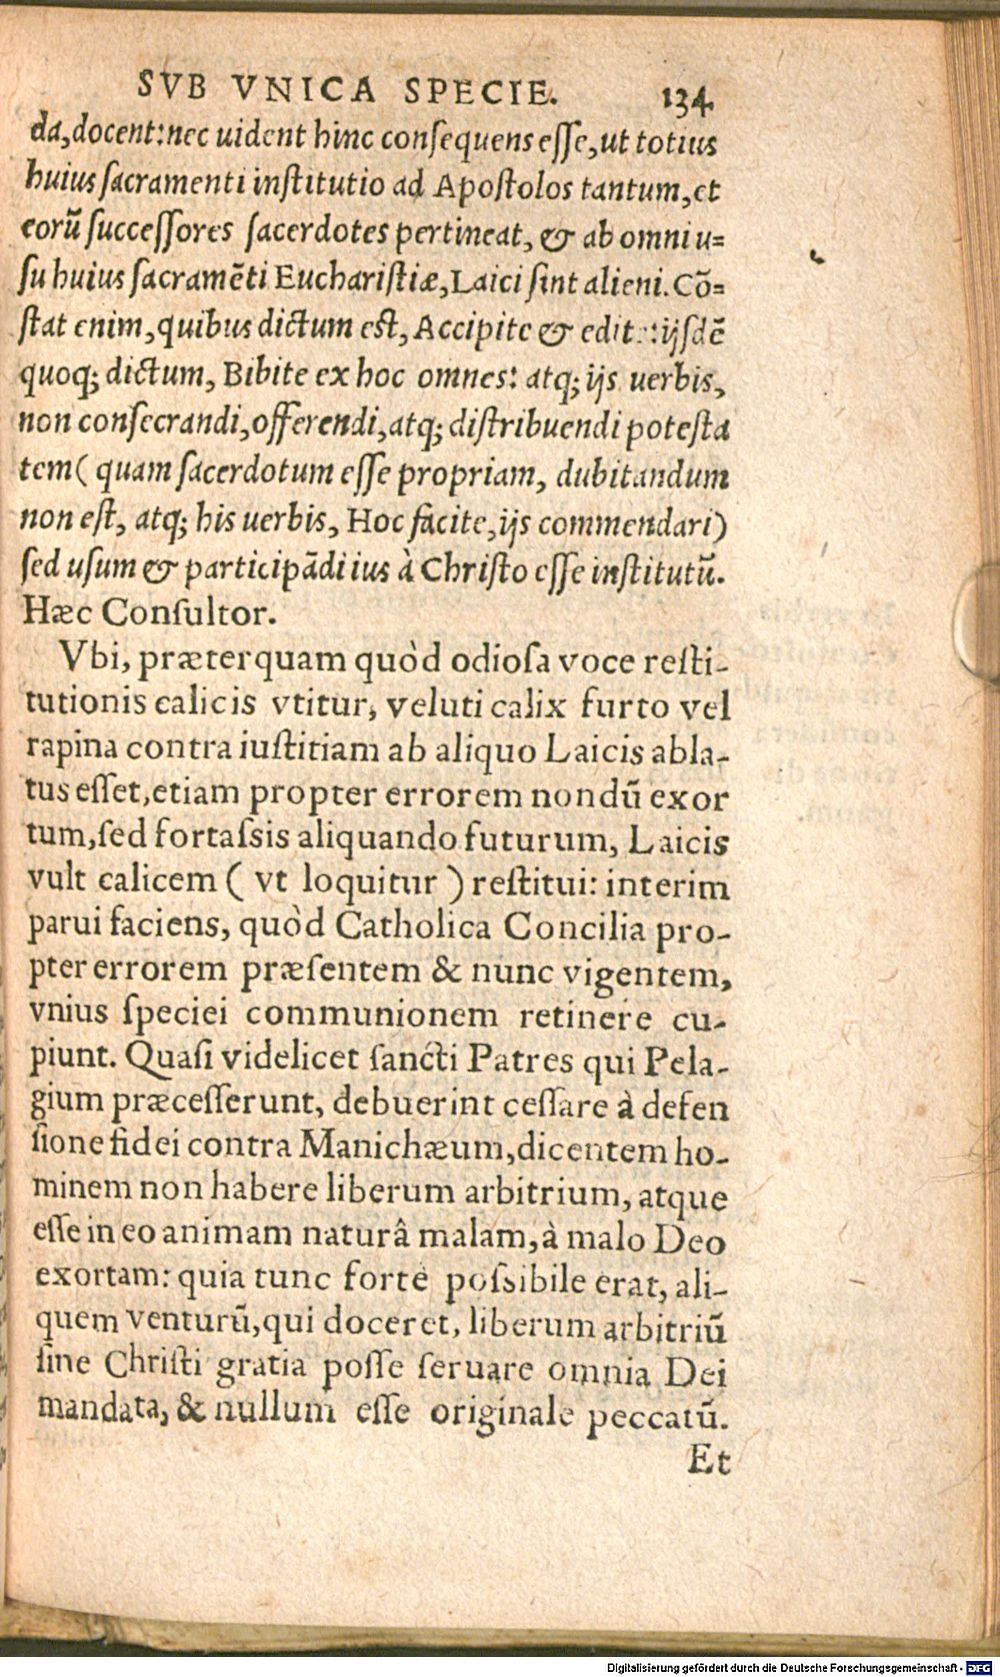 SVB VNICA SPECIE. 134
da, docent: nec uident hinc conſequens eſſe, ut totius
huius ſacramenti inſtitutio ad Apoſtolos tantum, et
eorũ ſucceſſores ſacerdotes pertineat, & ab omni u=
ſu huius ſacramẽti Euchariſtiæ, Laici ſint alieni. Cõ=
ſtat enim, quibus dictum eſt, Accipite & edit: :ijſdẽ
quoq; dictum, Bibite ex hoc omnes: atq; ijs uerbis,
non conſecrandi, offerendi, atq; diſtribuendi poteſta
tem ( quam ſacerdotum eſſe propriam, dubitandum
non eſt, atq; his uerbis, Hoc facite, ijs commendari)
ſed uſum & participãdi ius à Chriſto eſſe inſtitutũ.
Hæc Conſultor.
Vbi, præterquam quòd odioſa voce reſti-
tutionis calicis vtitur, veluti calix furto vel
rapina contra iuſtitiam ab aliquo Laicis abla-
tus eſſet, etiam propter errorem nondũ exor
tum, ſed fortaſsis aliquando futurum, Laicis
vult calicem ( vt loquitur ) reſtitui: interim
parui faciens, quòd Catholica Concilia pro-
pter errorem præſentem & nunc vigentem,
vnius ſpeciei communionem retinere cu-
piunt. Quaſi videlicet ſancti Patres qui Pela-
gium præceſſerunt, debuerint ceſſare à defen
ſione fidei contra Manichæum, dicentem ho-
minem non habere liberum arbitrium, atque
eſſe in eo animam naturâ malam, à malo Deo
exortam: quia tunc forte poſsibile erat, ali-
quem venturũ, qui doceret, liberum arbitriũ
ſine Chriſti gratia poſſe ſeruare omnia Dei
mandata, & nullum eſſe originale peccatũ.
Et
Digitalisierung gefördert durch die Deutsche Forschungsgemeinschaft - DFG